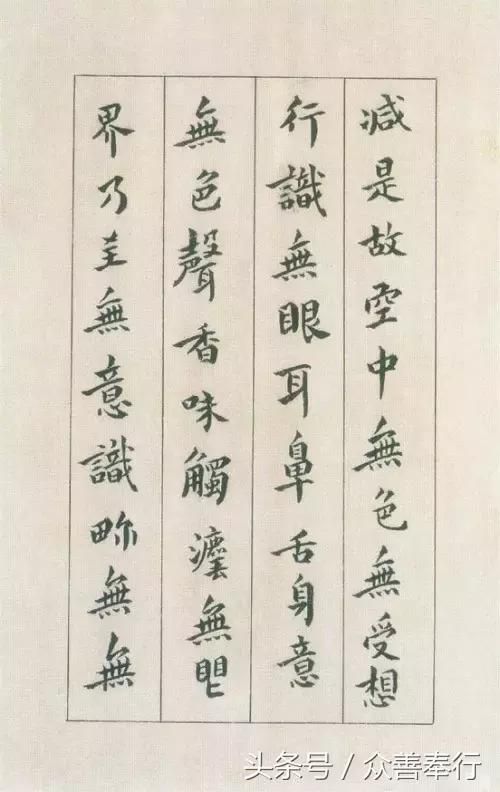 減是故空中無色無受想
行識無眼耳鼻舌身意
無色聲香味觸灋無眼
界乃至無意識畍無無
头条号 / 众善奉行